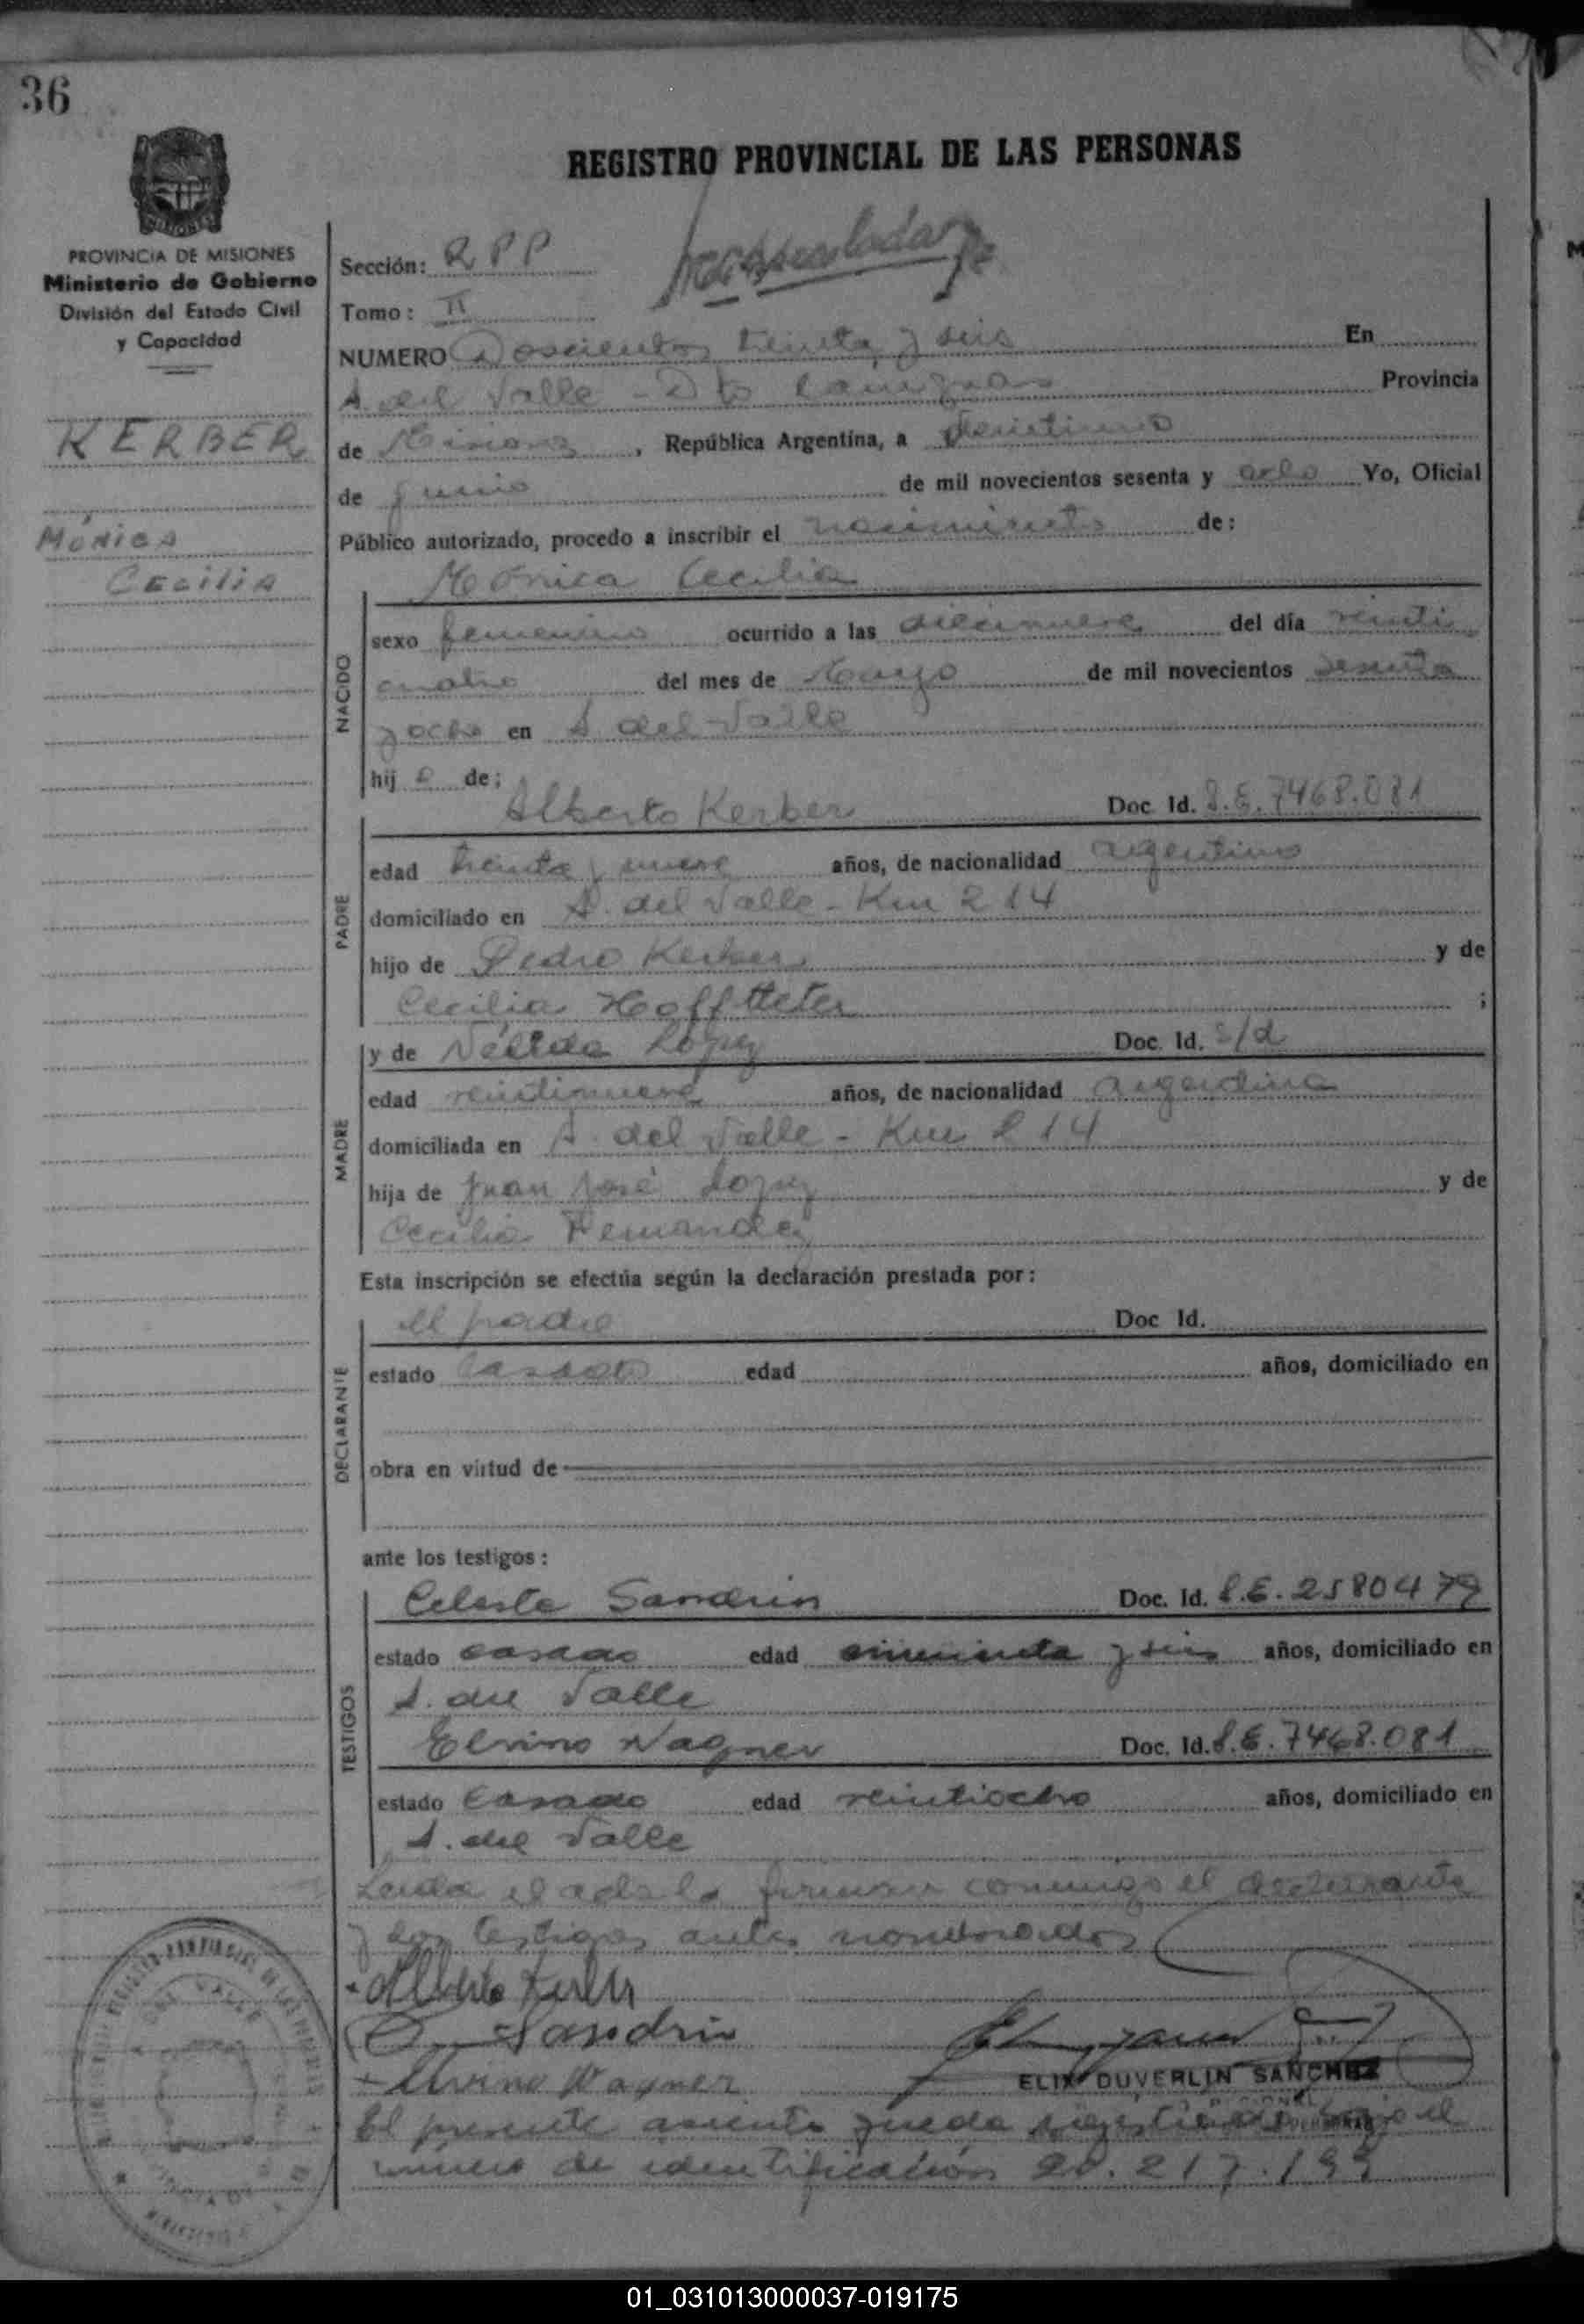 36
REGISTRO PROVINCIAL DE LAS PERSONAS
PROVINCIA DE MISIONES
Ministerio de Gobierno
División del Estado Civil
y Capacidad
KERBER
Mónica
Cecilia
Sección: RPP
Tomo: II
NUMERO Doscientos treinta y seis En
A. del Valle - Dto Cainguas Provincia
de Misiones, República Argentina, a veintiuno
de Junio de mil novecientos sesenta y ocho Yo, Oficial
Público autorizado, procedo a inscribir el nacimiento de:
Mónica Cecilia
NACIDO
sexo femenino ocurrido a las diecinueve del día veinti
cuatro del mes de Mayo de mil novecientos sesenta
y ocho en A. del Valle
hij a de:
Alberto Kerber Doc. Id. L.E. 7468.081
PADRE
edad treinta y nueve años, de nacionalidad argentino
domiciliado en A. del Valle - Km 214
hijo de Pedro Kerber y de
Cecilia Hofftteter ;
y de Nélida López Doc. Id. s/d
MADRE
edad veintinueve años, de nacionalidad argentina
domiciliada en A. del Valle - Km 214
hija de Juan José Lopez y de
Cecilia Fernandez
Esta inscripción se efectúa según la declaración prestada por:
DECLARANTE
el padre Doc Id.
estado casado edad años, domiciliado en
obra en virtud de
ante los testigos:
TESTIGOS
Celeste Sandrin Doc. Id. L.E. 2580479
estado casado edad cincuenta y seis años, domiciliado en
A. del Valle
Elvino Wagner Doc. Id. L.E. 7468.081
estado casado edad veintiocho años, domiciliado en
A. del Valle
Leida el acta la firman conmigo el declarante
y los testigos antes nombrados
Alberto Kerber
C. Sandrin
Elvino Wagner
ELIX DUVERLIN SANCHEZ
El presente asiento queda registrado bajo el
número de identificación 20.217.199
01_031013000037-019175